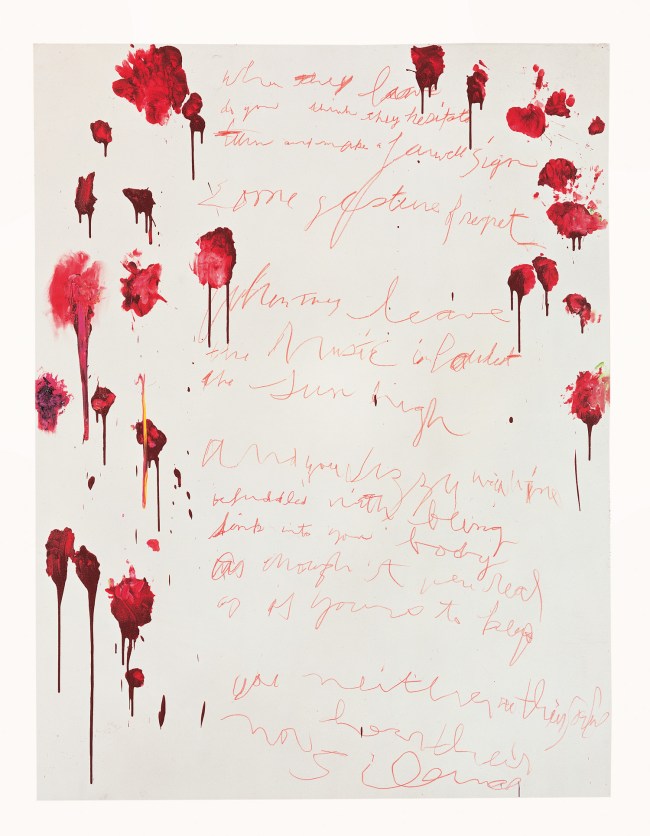 When they leave
do you think they hesitate
turn and make a farewell sign
some gesture of regret
When they leave
the Music is loudest
the Sun high
And you dizzy with wine
befuddled with being
sink into your body
as though it were real
as if yours to keep
you neither see their
nor hear their
Silence